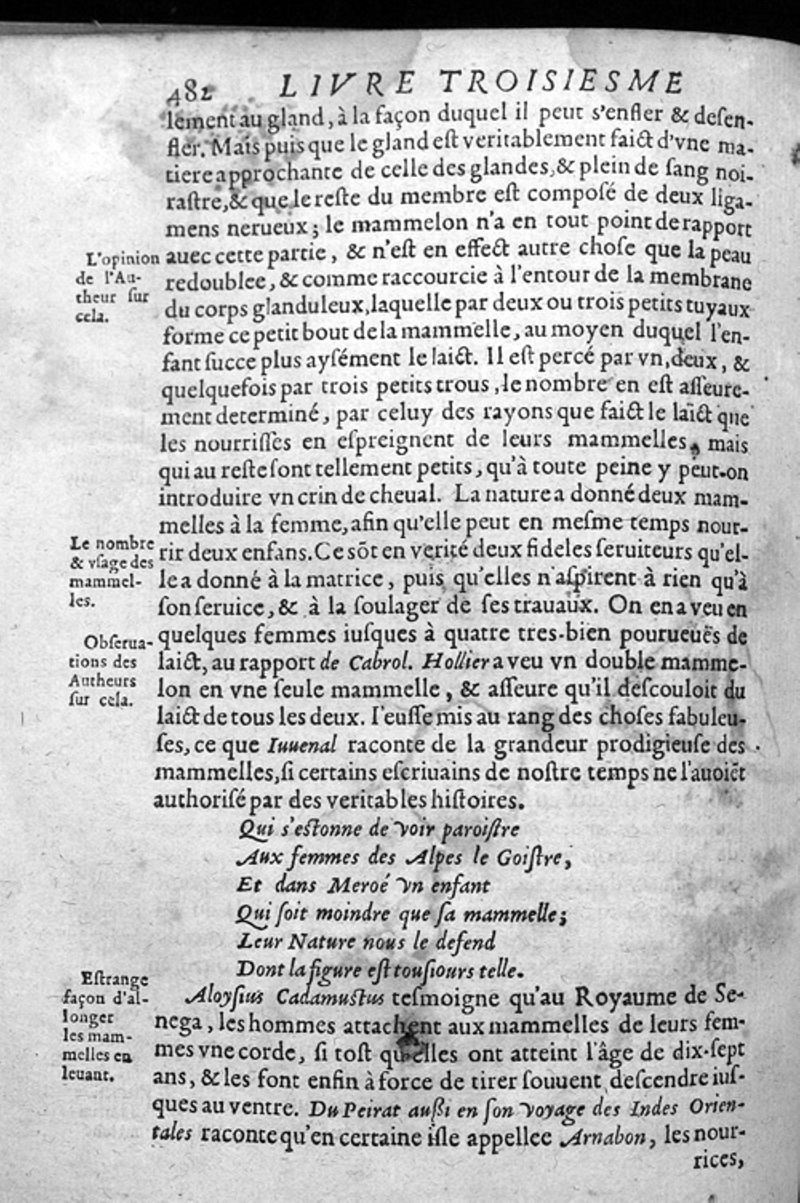 482 LIVRE TROISIESME
lement au gland, à la façon duquel il peut s'enfler & desen-
fler. Mais puis que le gland est veritablement faict d'vne ma-
tiere approchante de celle des glandes, & plein de sang noi-
rastre, & que le reste du membre est composé de deux liga-
mens nerueux; le mammelon n'a en tout point de rapport
L'opinion
de l'Au-
theur sur
cela.
auec cette partie, & n'est en effect autre chose que la peau
redoublee, & comme raccourcie à l'entour de la membrane
du corps glanduleux, laquelle par deux ou trois petits tuyaux
forme ce petit bout de la mammelle, au moyen duquel l'en-
fant succe plus aysément le laict. Il est percé par vn, deux, &
quelquefois par trois petits trous, le nombre en est asseure-
ment determiné, par celuy des rayons que faict le laict que
les nourrisses en espreignent de leurs mammelles, mais
qui au reste sont tellement petits, qu'à toute peine y peut-on
introduire vn crin de cheual. La nature a donné deux mam-
melles à la femme, afin qu'elle peut en mesme temps nour-
Le nombre
& vsage des
mammel-
les.
rir deux enfans. Ce sõt en verité deux fideles seruiteurs qu'el-
le a donné à la matrice, puis qu'elles n'aspirent à rien qu'à
son seruice, & à la soulager de ses trauaux. On en a veu en
Obserua-
tions des
Autheurs
sur cela.
quelques femmes iusques à quatre tres-bien pourueuës de
laict, au rapport de Cabrol. Hollier a veu vn double mamme-
lon en vne seule mammelle, & asseure qu'il descouloit du
laict de tous les deux. I'eusse mis au rang des choses fabuleu-
ses, ce que Iuuenal raconte de la grandeur prodigieuse des
mammelles, si certains escriuains de nostre temps ne l'auoiẽt
authorisé par des veritables histoires.
Qui s'estonne de voir paroistre
Aux femmes des Alpes le Goistre,
Et dans Meroé vn enfant
Qui soit moindre que sa mammelle;
Leur Nature nous le defend
Dont la figure est tousiours telle.
Estrange
façon d'al-
longer
les mam-
melles en
leuant.
Aloysius Cadamustus tesmoigne qu'au Royaume de Se-
nega, les hommes attachent aux mammelles de leurs fem-
mes vne corde, si tost qu'elles ont atteint l'âge de dix-sept
ans, & les font enfin à force de tirer souuent descendre ius-
ques au ventre. Du Peirat aussi en son voyage des Indes Orien-
tales raconte qu'en certaine isle appellee Arnabon, les nour-
rices,